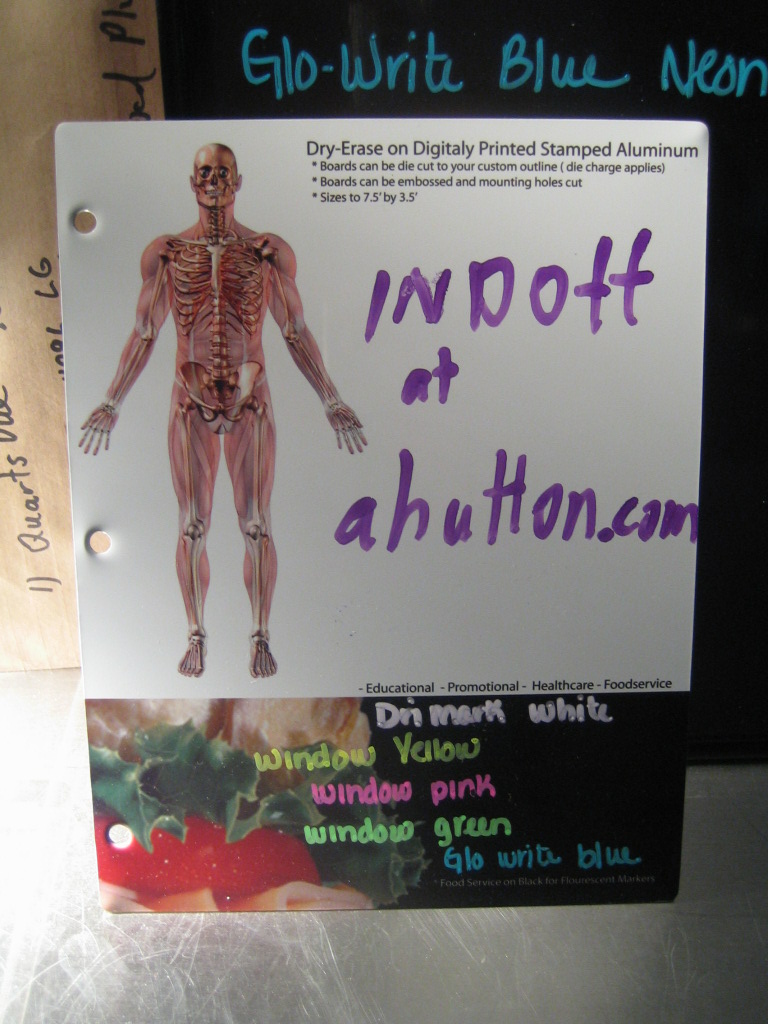 Glo-Write Blue Neon
Dry-Erase on Digitaly Printed Stamped Aluminum
* Boards can be die cut to your custom outline ( die charge applies)
* Boards can be embossed and mounting holes cut
* Sizes to 7.5' by 3.5'
INDOff
at
ahutton.com
- Educational - Promotional - Healthcare - Foodservice
Dri mark white
window Yellow
window pink
window green
Glo write blue
* Food Service on Black for Flourescent Markers
1) Quarts